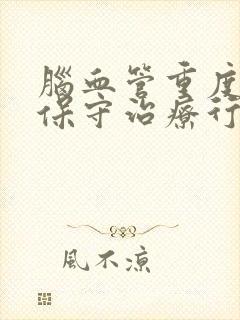 腦血管重度
保守治療行
風不涼